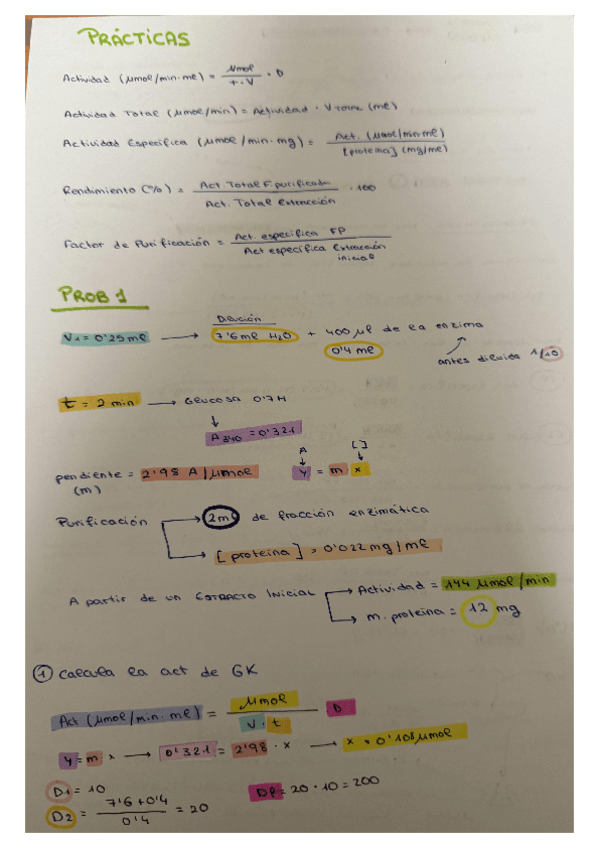 PRÁCTICAS
Actividad (μmol/min·ml) = μmol / t · V · D
Actividad Total (μmol/min) = Actividad · V TOTAL (ml)
Actividad Específica (μmol/min·mg) = Act. (μmol/min·ml) / [proteína] (mg/ml)
Rendimiento (%) = Act. Total F. purificada / Act. Total extracción · 100
Factor de Purificación = Act. específica FP / Act específica Extracción inicial
PROB 1
Dilución
V1 = 0'25 ml → 7'6 ml H2O + 400 μl de la enzima
0'4 ml
antes diluida 1/10
t = 2 min → Glucosa 0'7M
A340 = 0'321
A [ ]
pendiente = 2'98 A/μmol y = m x
(m)
Purificación → 2ml de fracción enzimática
→ [proteína] = 0'022 mg/ml
A partir de un EXTRACTO INICIAL → Actividad = 144 μmol/min
→ m. proteína = 12 mg
① Calcula la act de GK
Act (μmol/min·ml) = μmol / V · t · D
y = m x → 0'321 = 2'98 · x → x = 0'108 μmol
D1 = 10
D2 = 7'6 + 0'4 / 0'4 = 20
Df = 20 · 10 = 200